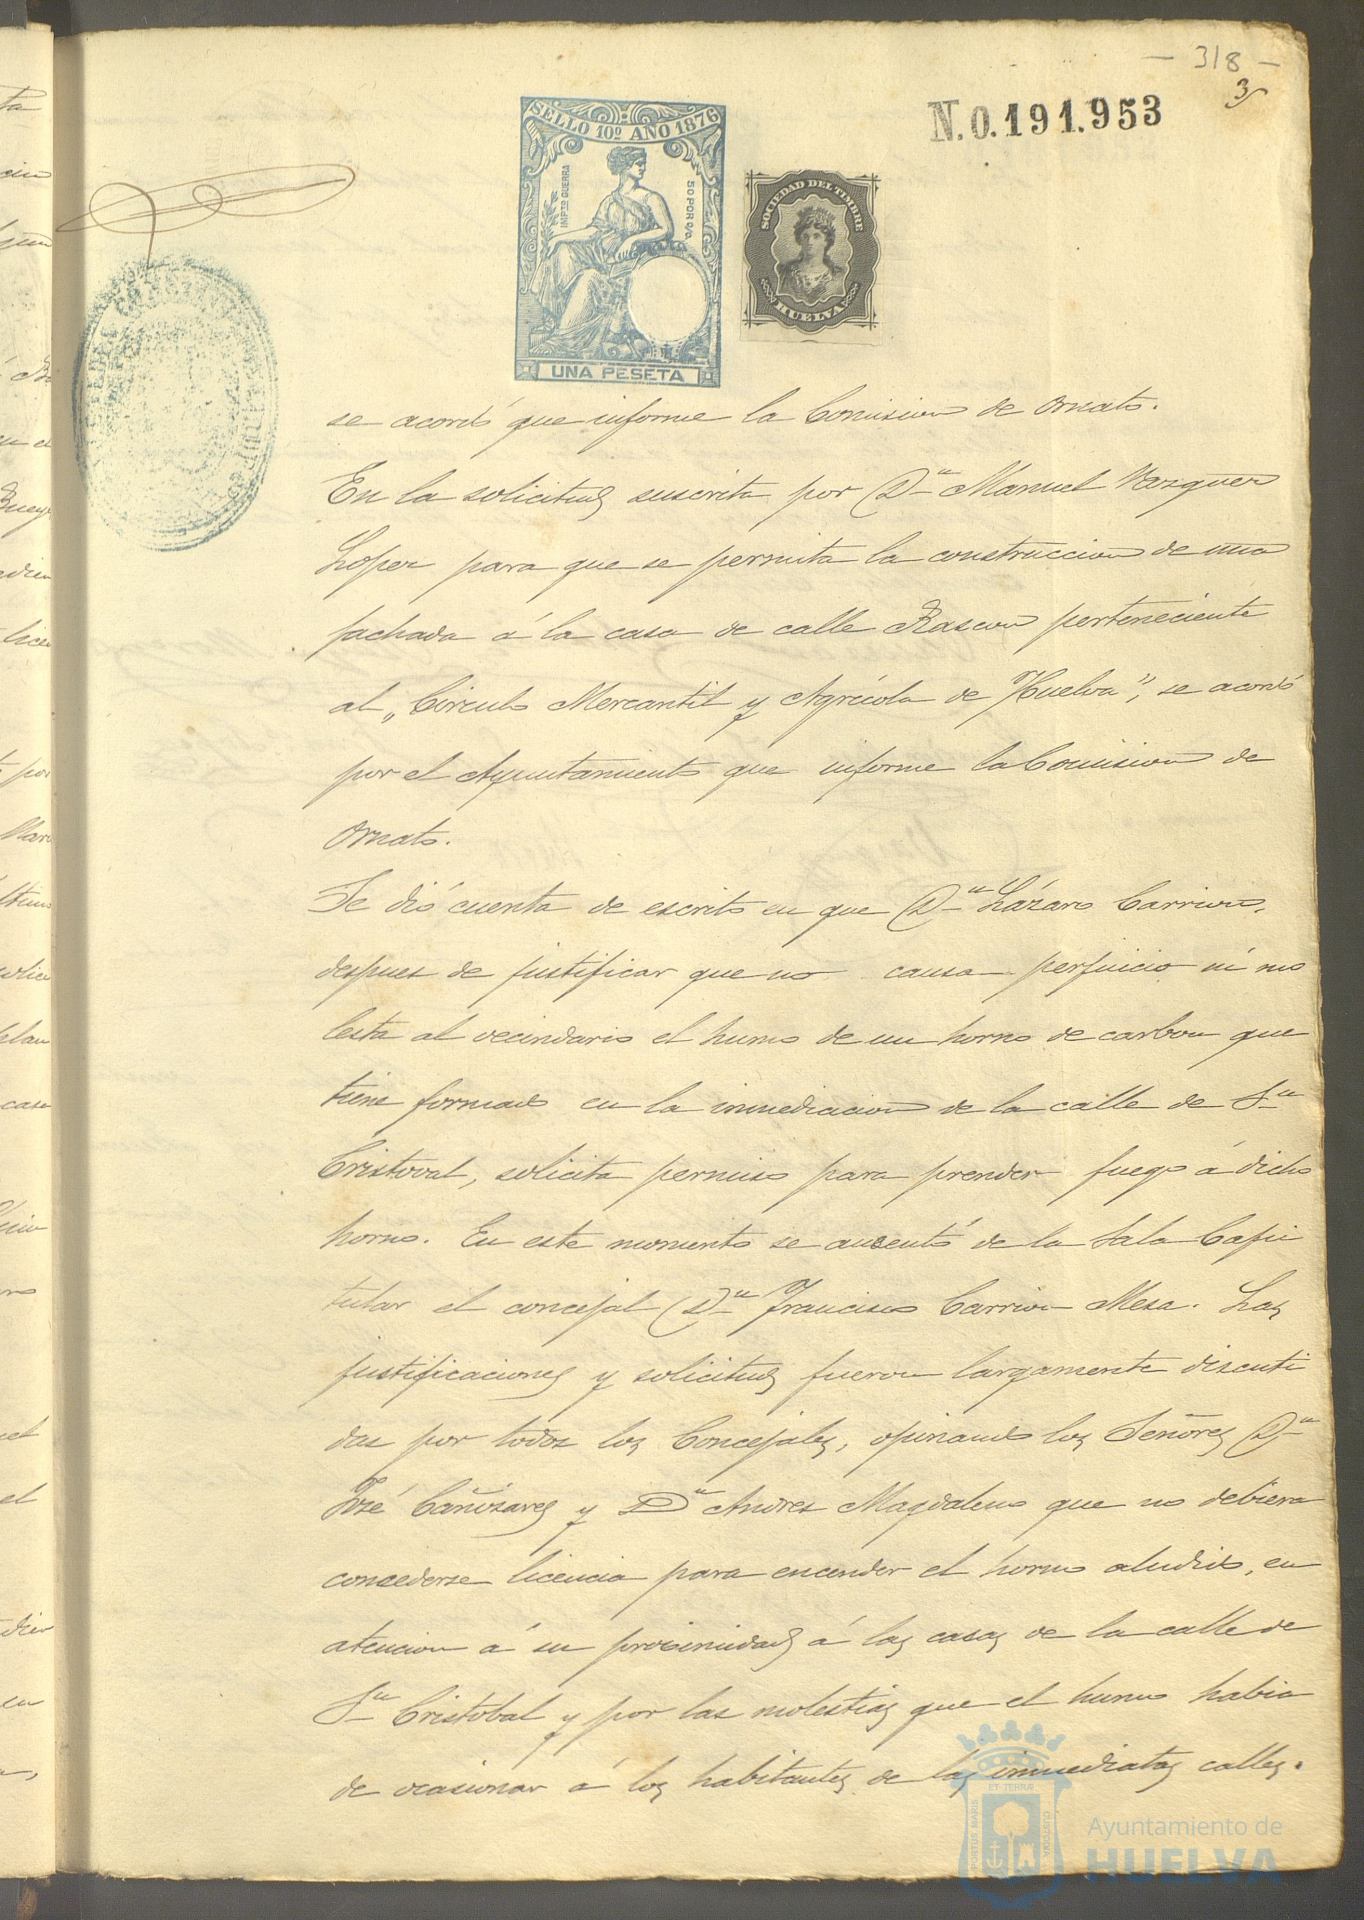 - 318 -
3
N.0.191.953
SELLO 10º AÑO 1876
IMPTO GUERRA
50 POR 0/0
UNA PESETA
SOCIEDAD DEL TIMBRE
HUELVA
se acordó que informe la Comision de Ornato.
En la solicitud suscrita por Dn Manuel Vazquez
Lopez para que se permita la construccion de una
fachada á la casa de calle Rascon perteneciente
al „Círculo Mercantil y Agrícola de Huelva", se acordó
por el Ayuntamiento que informe la Comision de
Ornato.
Se dió cuenta de escrito en que Dn Lázaro Carrion,
despues de justificar que no causa perjuicio ni mo
lestia al vecindario el humo de un horno de carbon que
tiene formado en la inmediacion de la calle de Sn
Cristoval, solicita permiso para prender fuego á dicho
horno. En este momento se ausentó de la Sala Capi
tular el concejal Dn Francisco Carrion Mesa. Las
justificaciones y solicitud fueron largamente discuti
das por todos los Concejales, opinando los Señores Dn
José Cañizares y Dn Andres Magdaleno que no debiera
concederse licencia para encender el horno aludido, en
atencion á su proximidad á las casas de la calle de
Sn Cristobal y por las molestias que el humo habia
de ocasionar á los habitantes de las inmediatas calles.
PORTUS MARIS
ET TERRÆ
CUSTODIA
Ayuntamiento de
HUELVA